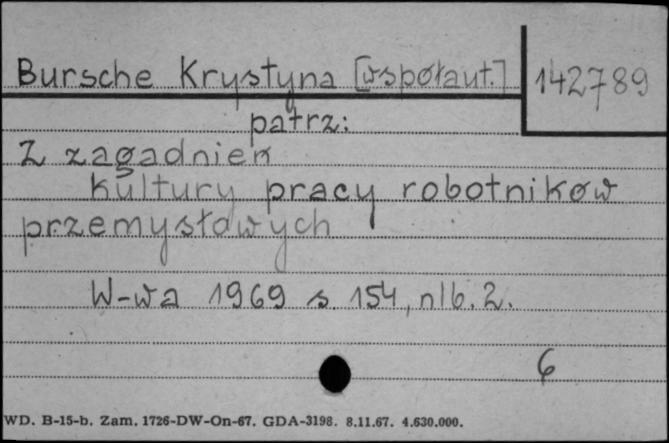 Bursche Krystyna [współaut.] 142789
patrz:
Z zagadnień
kultury pracy robotników
przemysłowych
W-wa 1969 s. 154, nlb. 2.
6
WD. B-15-b. Zam. 1726-DW-On-67. GDA-3198. 8.11.67. 4.630.000.